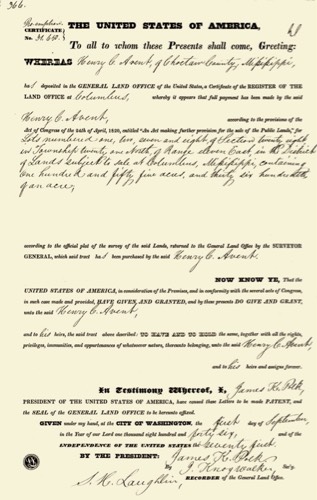 366.
Pre-emption
CERTIFICATE
THE UNITED STATES OF AMERICA,
To all to whom these Presents shall come, Greeting:
WHEREAS Henry C. Avent, of Choctaw County, Mississippi,
has deposited in the GENERAL LAND OFFICE of the United States, a Certificate of the REGISTER OF THE
LAND OFFICE at Columbus, whereby it appears that full payment has been made by the said
Henry C. Avent, according to the provisions of the
Act of Congress of the 24th of April, 1820, entitled "An Act making further provision for the sale of the Public Lands," for
Lots numbered one, two, seven and eight, of Section twenty
in Township twenty one North, of Range eleven East, in the District
of Lands subject to sale at Columbus, Mississippi, containing
one hundred and fifty five acres, and thirty six hundredths
of an acre,
according to the official plat of the survey of the said Lands, returned to the General Land Office by the SURVEYOR
GENERAL, which said tract has been purchased by the said Henry C. Avent,
NOW KNOW YE, That the
UNITED STATES OF AMERICA, in consideration of the Premises, and in conformity with the several acts of Congress,
in such case made and provided, HAVE GIVEN AND GRANTED, and by these presents DO GIVE AND GRANT,
unto the said Henry C. Avent,
and to his heirs, the said tract above described: TO HAVE AND TO HOLD the same, together with all the rights,
privileges, immunities, and appurtenances of whatsoever nature, thereunto belonging, unto the said Henry C. Avent,
and to his heirs and assigns forever.
In Testimony Whereof, I, James K. Polk
PRESIDENT OF THE UNITED STATES OF AMERICA, have caused these Letters to be made PATENT, and
the SEAL of the GENERAL LAND OFFICE to be hereunto affixed.
GIVEN under my hand, at the CITY OF WASHINGTON, the first day of September
in the Year of our Lord one thousand eight hundred and forty six, and of the
INDEPENDENCE OF THE UNITED STATES the seventy first.
BY THE PRESIDENT: James K. Polk
By J. Knox Walker, Sec'y.
S. H. Laughlin, RECORDER of the General Land Office.